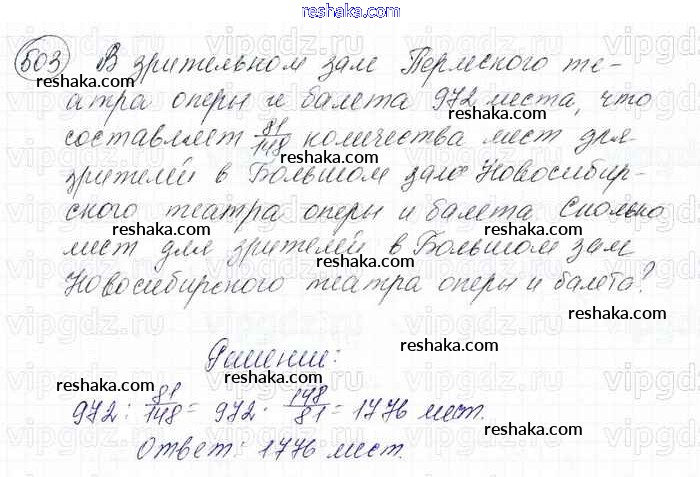 503 В зрительном зале Пермского те-
атра оперы и балета 972 места, что
составляет 81/148 количества мест для
зрителей в Большом зале Новосибир-
ского театра оперы и балета. Сколько
мест для зрителей в Большом зале
Новосибирского театра оперы и балета?
Решение:
972 : 81/148 = 972 · 148/81 = 1776 мест.
Ответ: 1776 мест.
reshaka.ru
reshaka.ru
reshaka.ru
reshaka.ru
reshaka.ru
reshaka.ru
reshaka.ru
reshaka.ru
reshaka.ru
reshaka.ru
reshaka.ru
reshaka.ru
reshaka.ru
vipgdz.ru